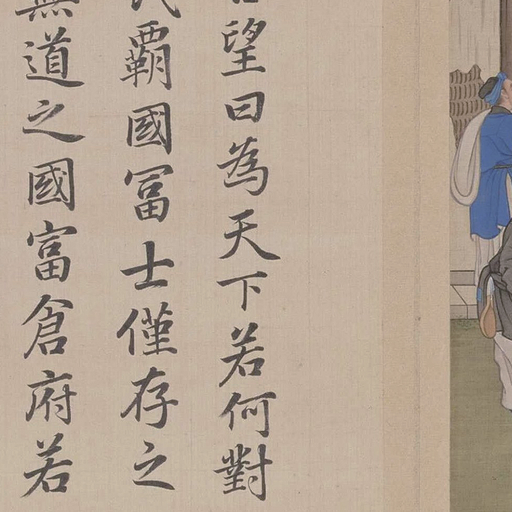 望曰為天下若何對
霸國冨士僅存之
道之國富倉府若